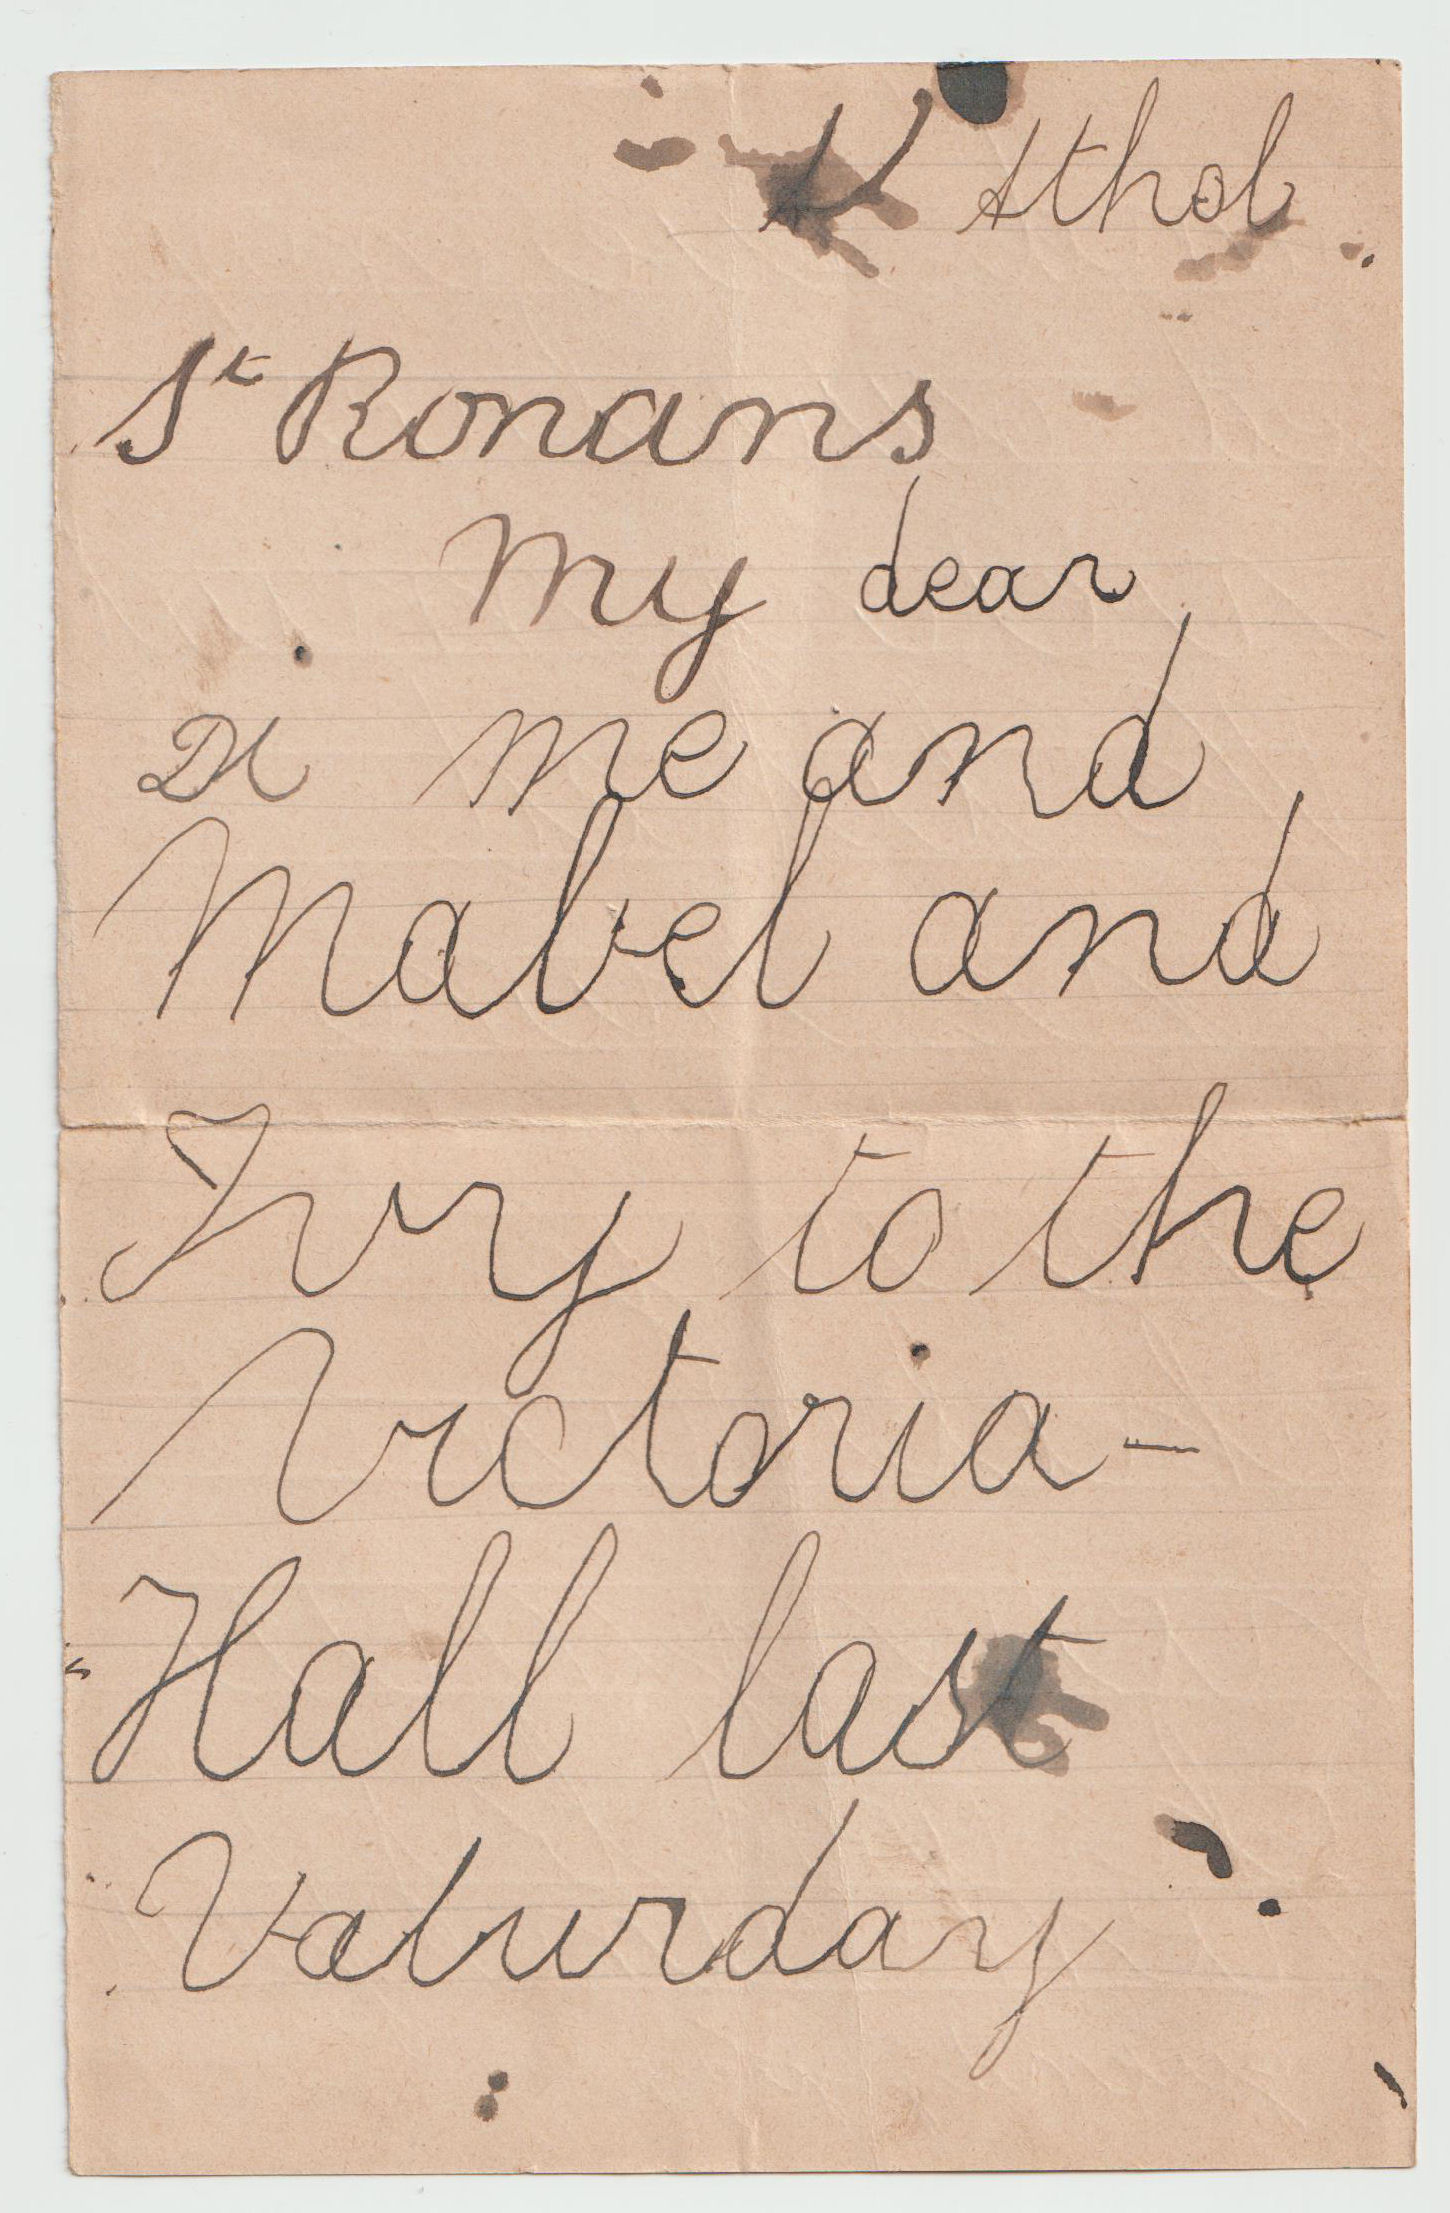 Athol
St Ronans
My dear
Di me and
Mabel and
Ivy to the
Victoria-
Hall last
Saturday